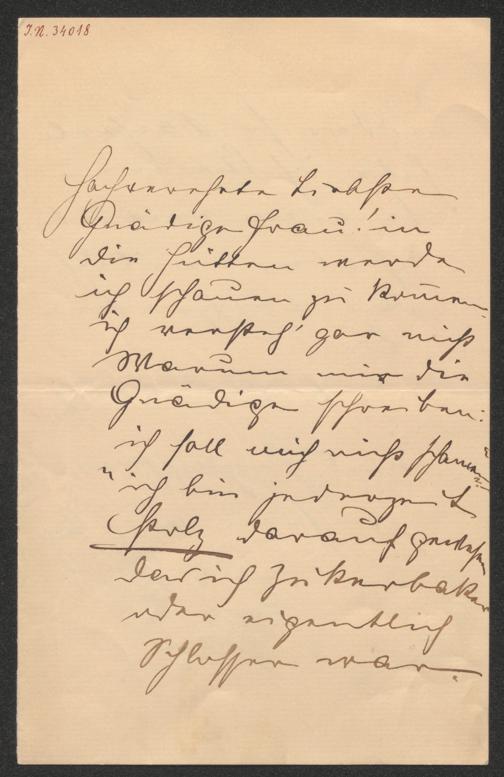 I.N. 34018
Hochverehrte Liebste
Gnädige Frau! in
die Hütten werde
ich schauen zu komen.
ich versteh' gar nicht
Warum mir die
Gnädige schreiben:
ich soll mich nicht schämen"
"ich bin jederzeit
stolz darauf gewesen
das ich Zukerbaker
oder eigentlich
Schlosser war.